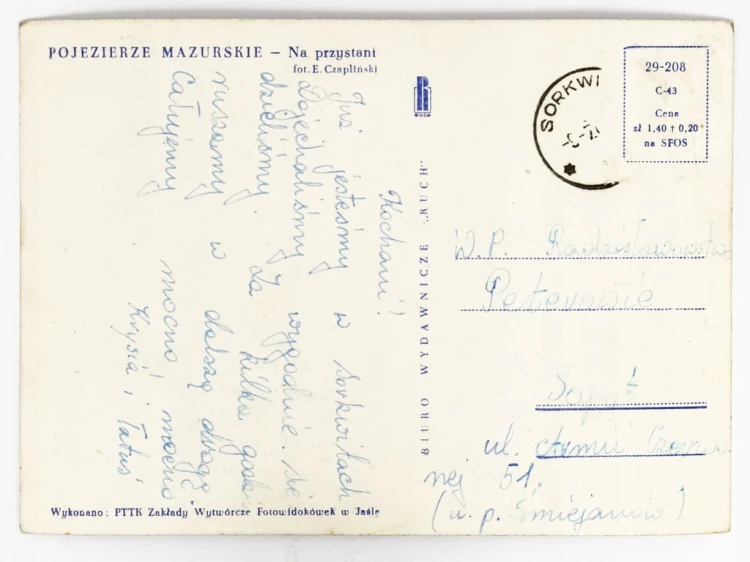 POJEZIERZE MAZURSKIE – Na przystani
fot. E. Czapliński
Kochani!
Już jesteśmy w Sorkwitach
Dojechaliśmy wygodnie. się
dzieliśmy. Za kilka godz.
ruszamy w dalszą drogę
Całujemy mocno! mocno
Krysia i Tatuś
Wykonano: PTTK Zakłady Wytwórcze Fotowidokówek w Jaśle
RUCH
BIURO WYDAWNICZE „RUCH”
SORKWI
29-208
C-43
Cena
zł 1,40 + 0,20
na SFOS
W.P. Radzisławowstwo
Peterowie
Sopot
ul. Armii Czerwo
nej 51.
(u. p.